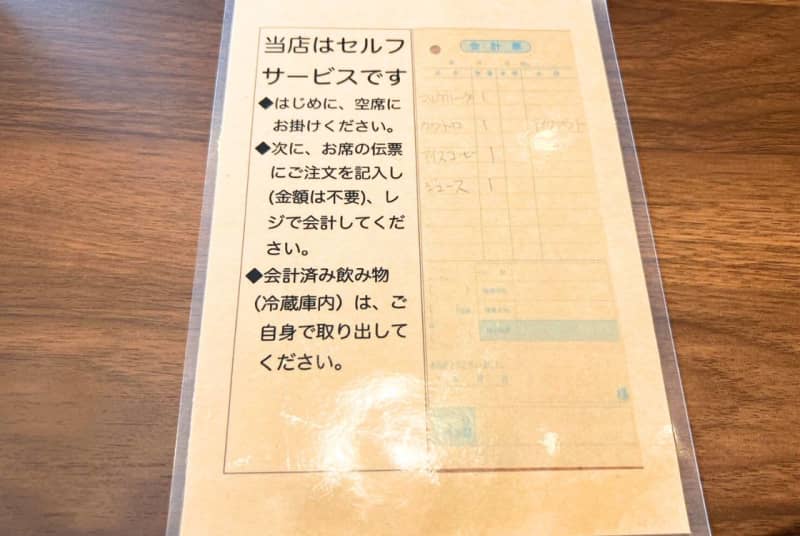 当店はセルフ
サービスです
◆はじめに、空席に
お掛けください。
◆次に、お席の伝票
にご注文を記入し
(金額は不要)、レ
ジで会計してくだ
さい。
◆会計済み飲み物
（冷蔵庫内）は、ご
自身で取り出して
ください。
会計票
マルゲリータ 1
クワトロ 1 テイクアウト
アイスコーヒー 1
ジュース 1